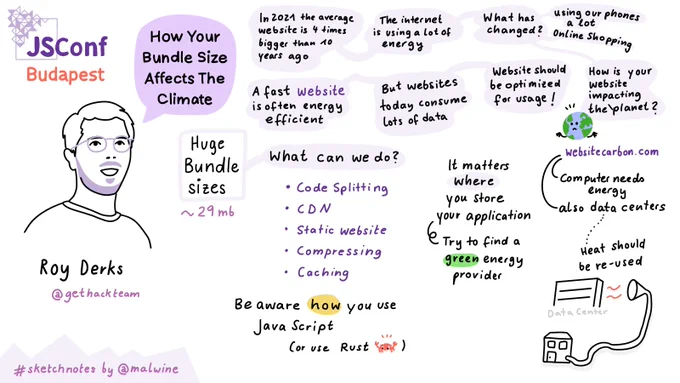 JSConf
Budapest
How Your
Bundle Size
Affects The
Climate
In 2021 the average
website is 4 times
bigger than 10
years ago
The internet
is using a lot of
energy
What has
changed?
using our phones
a lot
Online Shopping
A fast website
is often energy
efficient
But websites
today consume
lots of data
Website should
be optimized
for usage!
How is your
website
impacting
the planet?
websitecarbon.com
Computer needs
energy
also data centers
Heat should
be re-used
Data Center
Huge
Bundle
sizes
~ 29 mb
What can we do?
• Code Splitting
• CDN
• Static Website
• Compressing
• Caching
It matters
where
you store
your application
Try to find a
green energy
provider
Be aware how you use
Java Script
(or use Rust )
Roy Derks
@gethackteam
#sketchnotes by @malwine